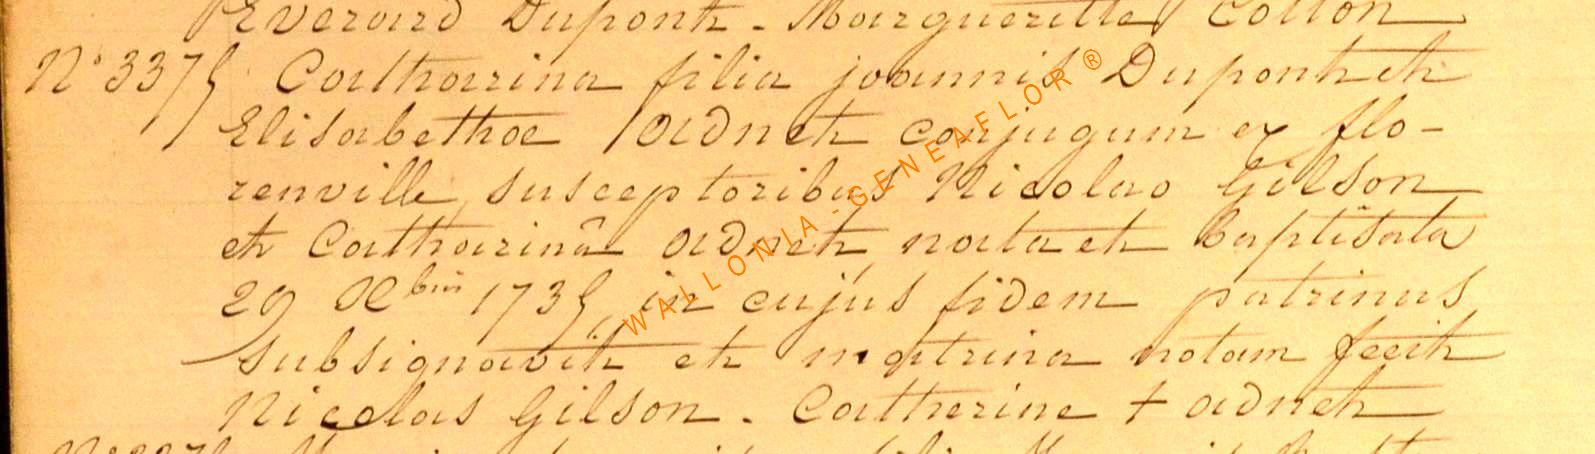 Everard Dupont - Margueritte Collon
N° 3375 Catharina filia joannis Dupont et
Elisabethae Adnet conjugum ex flo-
renville, susceptoribus Nicolao Gilson
et Catharinâ Adnet, nata et baptisata
29 Xbris 1735, in cujus fidem patrinus
subsignavit et matrina notam fecit
Nicolas Gilson - Catherine + adnet
WALLONIA-GENEAFLOR®